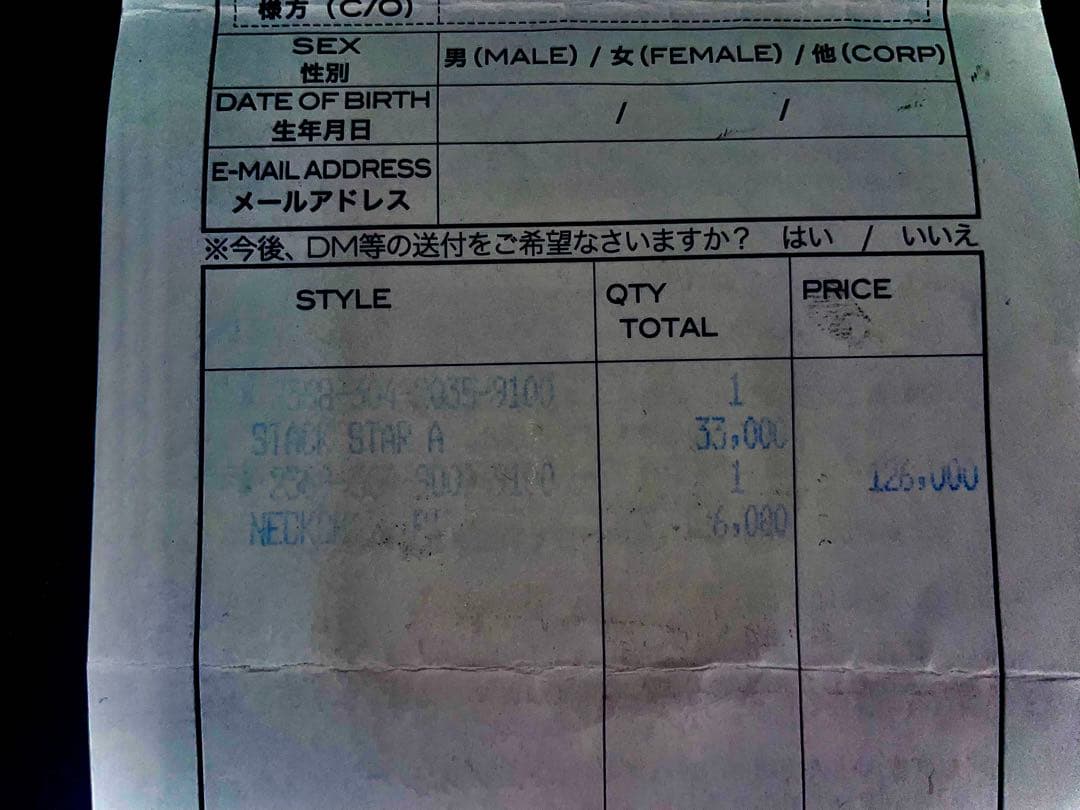 様方 (C/O)
SEX
性別
男(MALE) / 女(FEMALE) / 他(CORP)
DATE OF BIRTH
生年月日
/ /
E-MAIL ADDRESS
メールアドレス
※今後、DM等の送付をご希望なさいますか? はい / いいえ
STYLE
QTY
TOTAL
PRICE
1
STACK STAR A
33,000
1
126,000
6,000